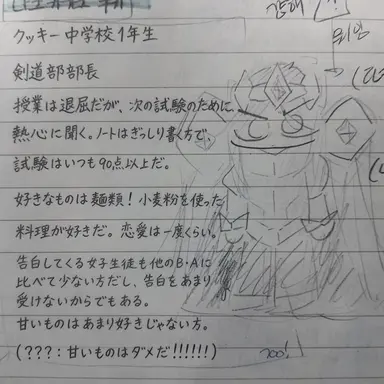 クッキー中学校1年生
剣道部部長
授業は退屈だが、次の試験のために、
熱心に聞く。ノートはぎっしり書く方で、
試験はいつも90点以上だ。
好きなものは麺類！小麦粉を使った
料理が好きだ。恋愛は一度くらい。
告白してくる女子生徒も他のB·Aに
比べて少ない方だし、告白をあまり
受けないからでもある。
甘いものはあまり好きじゃない方。
(???:甘いものはダメだ!!!!!!)